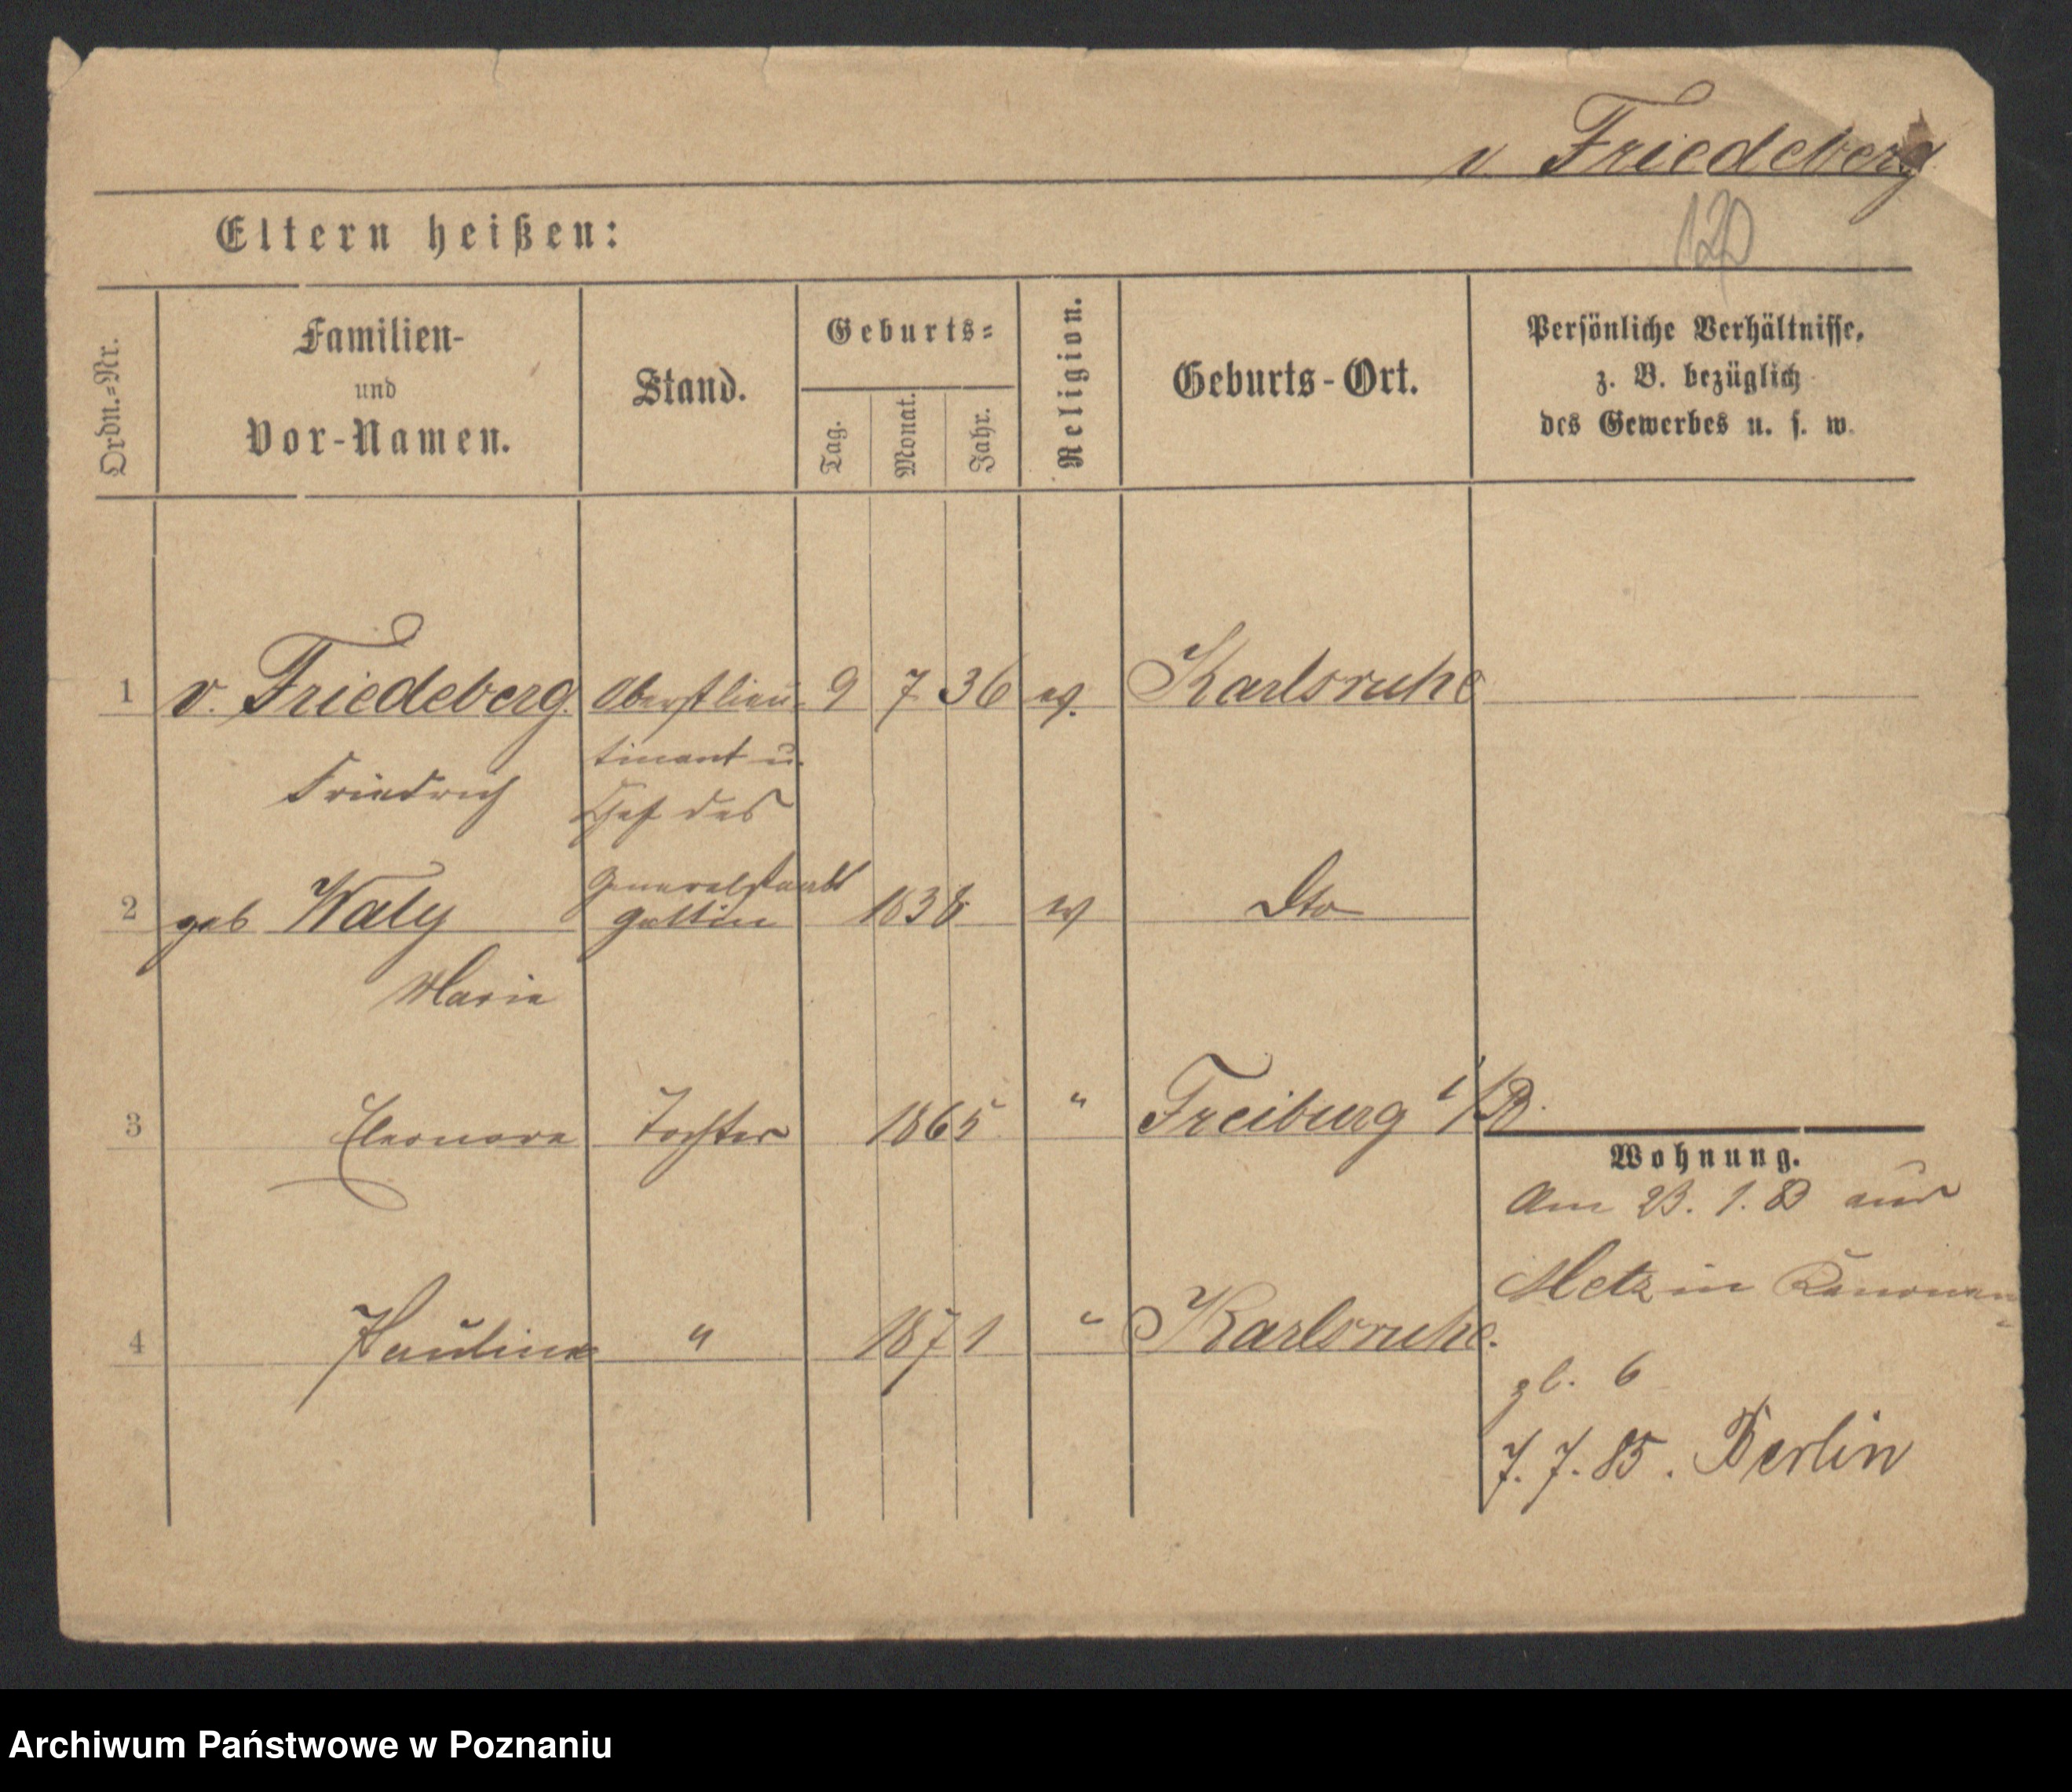 v. Friedeberg
120
Eltern heißen:
Ordn.=Nr.
Familien-
und
Vor-Namen.
Stand.
Geburts=
Tag.
Monat.
Jahr.
Religion.
Geburts-Ort.
Persönliche Verhältnisse,
z. B. bezüglich
des Gewerbes u. s. w.
1 v. Friedeberg Oberstlieu- 9 7 36 ev. Karlsruhe
tenant u.
Friedrich Chef des
Generalstaabs
2 geb Waly Gattin 1838 ev Dto
Marie
3 Eleonore Tochter 1865 " Freiburg i/B.
Wohnung.
Am 23. 1. 83 aus
Metz in Kanonen
4 Pauline " 1871 " Karlsruhe.
pl. 6
7. 7. 85. Berlin
Archiwum Państwowe w Poznaniu